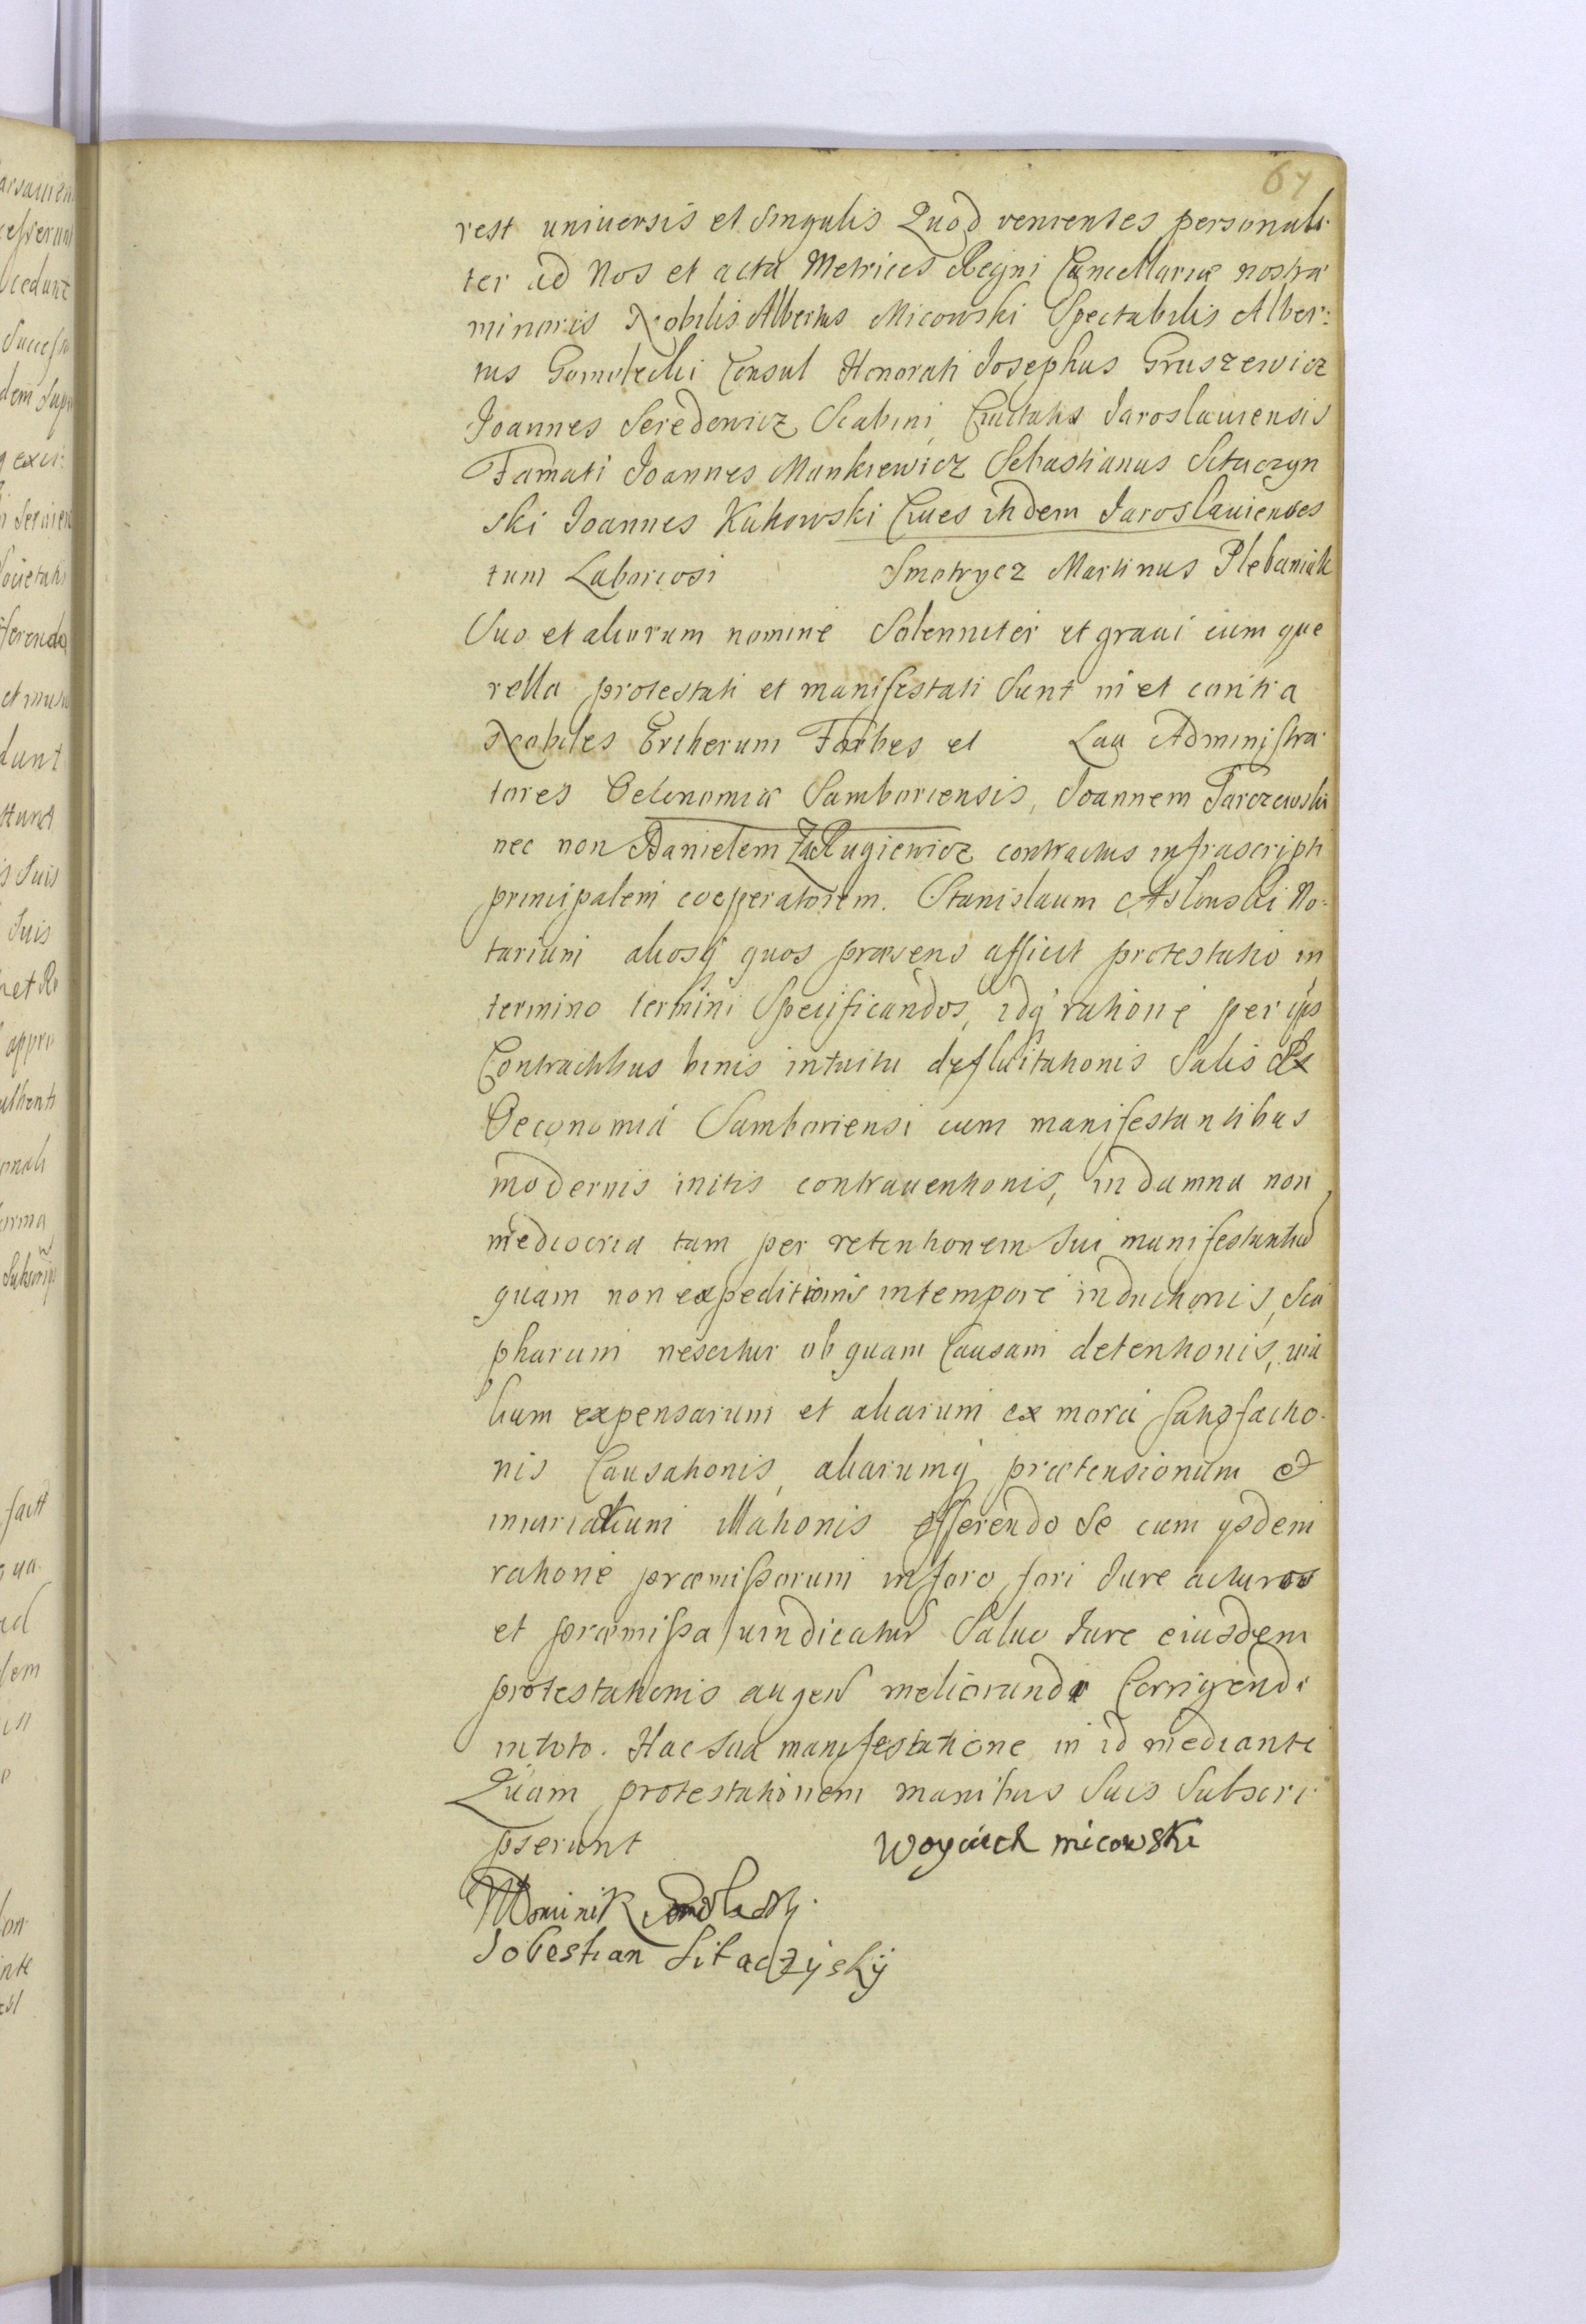 67
rest uniuersis et Singulis Quod venientes personali-
ter ad Nos et acta Metrices Regni Cancellariæ nostræ
minoris Nobilis Albertus Micowski Spectabilis Alber:
tus Gomolecki Consul Honorati Josephus Gruszewicz
Joannes Seredowicz Scabini Ciuitatis Jaroslauiensis
Famati Joannes Mankiewicz Sebastianus Sitaczyn
ski Joannes Kukowski Ciues itidem Jaroslauienses
tum Laboriosi Smotrycz Martinus Plebaniak
Suo et aliorum nomine Solenniter et graui cum que
rella protestati et manifestati Sunt in et contra
Nobiles Forbes et Lau Administra
tores Oeconomiæ Samboriensis, Joannem Parczewski
nec non Danielem contractus infrascripti
principalem cooperatorem. Stanislaum No-
tarium aliosq quos præsens afficit protestatio in
termino termini Specificandos, idq ratione per ips
Contractibus binis intuitu defluitationis Salis Ex
Oeconomia Samboriensi cum manifestantibus
modernis initis contrauentionis, in damna non
mediocria tam per retentionem Sui manifestantiũ
quam non expeditionis intempore inductionis, Sca
pharum nescitur ob quam Causam detentionis, uia
lium expensarum et aliarum ex mora satisfactio-
nis Causationis, aliarumq prætensionum &
iniuriarum illationis offerendo Se cum ysdem
ratione præmissorum in foro fori Jure acturos
et præmissa uindicatur Saluo Jure eiusdem
protestationis augen meliorandi Corrigendi
in toto. Hac sua manifestatione in id mediante
Quam protestationem manibus Suis Subscri-
pserunt Woyciech micowski
Dominik
Sobestian Sitaczÿskÿ